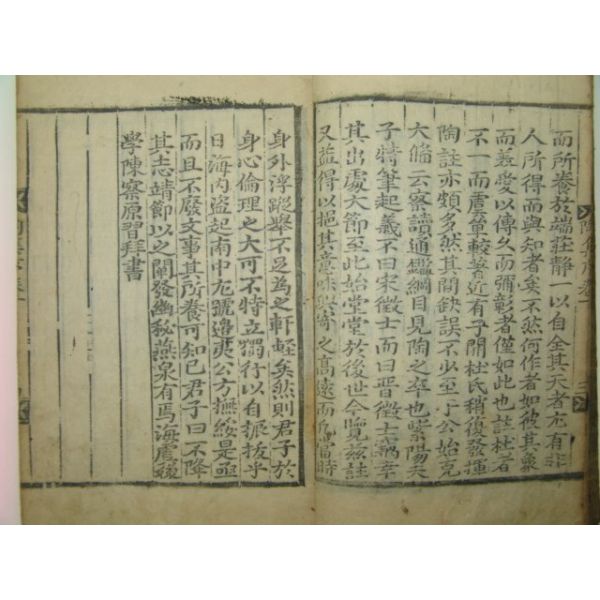 而所養於端莊靜一以自全其天者尤有非
人所得而與知者矣不然何作者如彼其衆
而善愛以傳久而彌彰者僅如此也註杜者
不一而虞輩較著近有子開杜氏稍復發揮
陶註亦頗多然其間缺誤不少至公始克
大備云察讀通鑑綱目見陶之卒也紫陽夫
子特筆起義不曰宋徵士而曰晉徵士竊幸
其出處大節至此始堂堂於後世今覽玆註
又益得以挹其意味興寄之高遠而凡當時
身外浮蹤擧不足爲之軒輊矣然則君子於
身心倫理之大可不特立獨行以自振拔乎
日海內盜起南中尤號邊夷公方撫綏是亟
而且不廢文事其所養可知已君子曰不降
其志靖節以之闡發幽秘燕泉有焉海虞
學陳察原習拜書